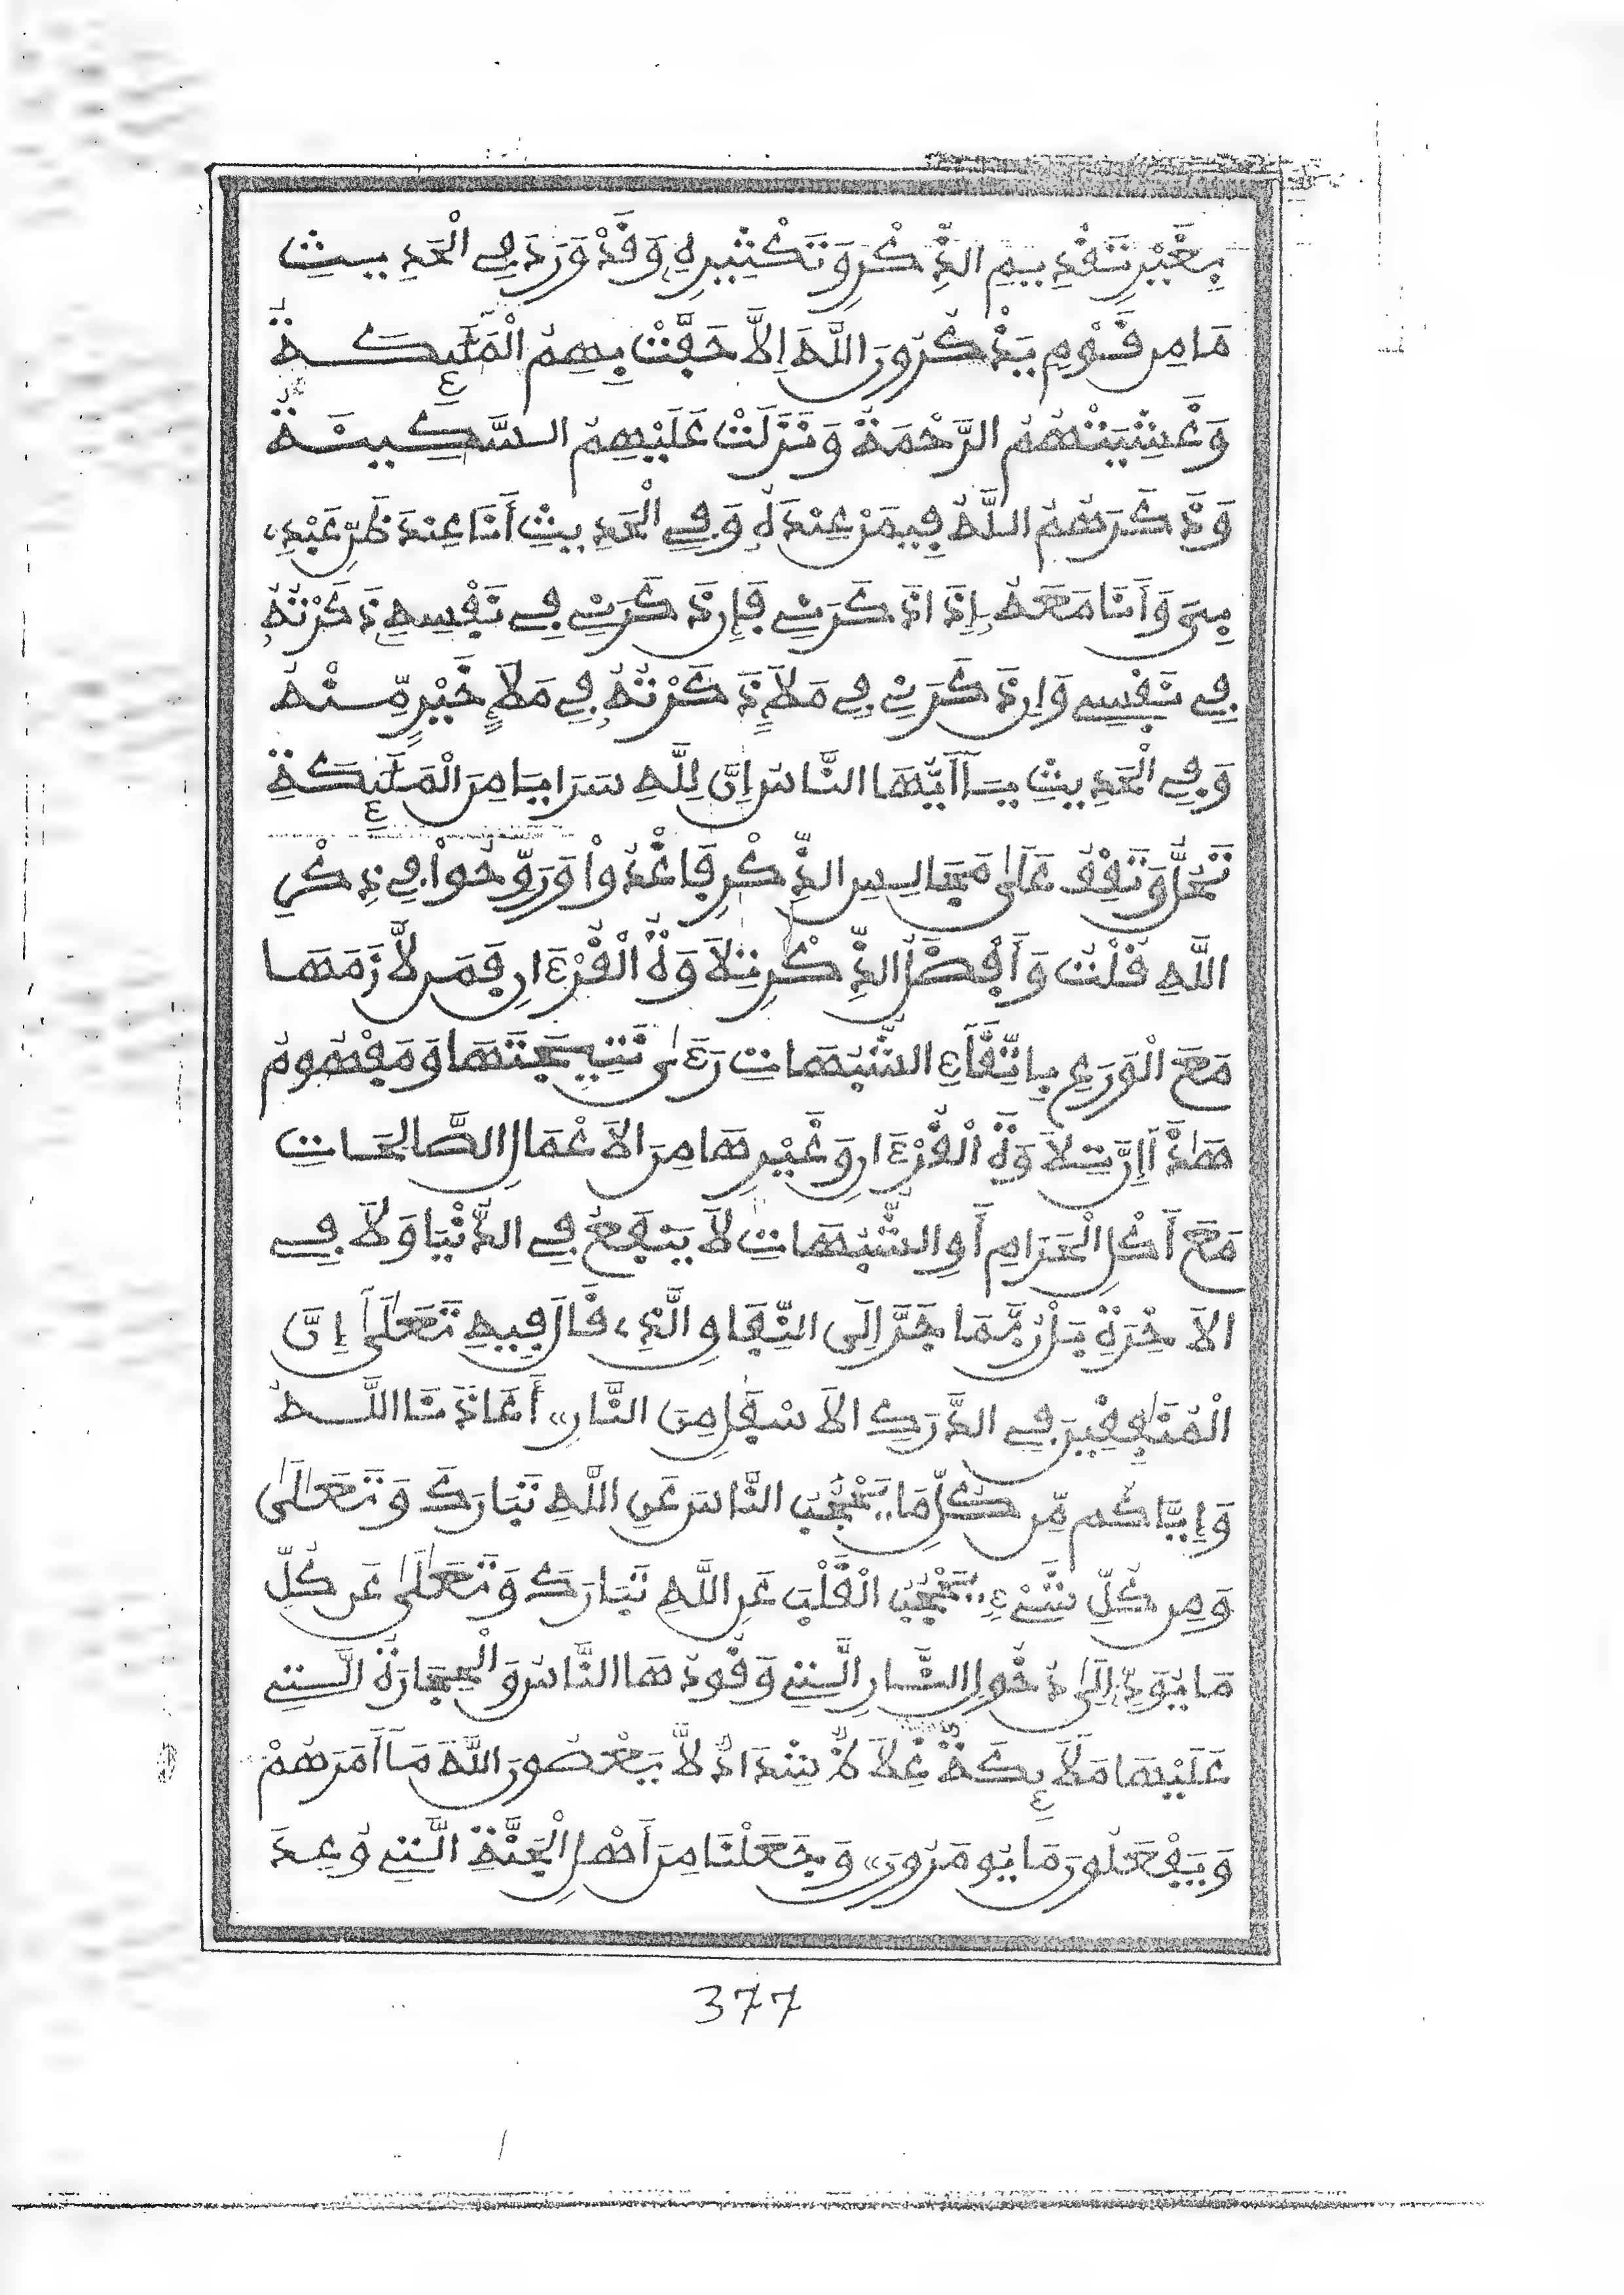 بِغَيْرِ تَقْدِيمِ الذِّكْرِ وَتَكْثِيرِهِ وَقَدْ وَرَدَ فِي الْحَدِيثِ
مَا مِن قَوْمٍ يَذْكُرُونَ اللَّهَ إِلَّا حَفَّتْ بِهِمُ الْمَلَٰٓئِكَةُ
وَغَشِيَتْهُمُ الرَّحْمَةُ وَنَزَلَتْ عَلَيْهِمُ السَّكِينَةُ
وَذَكَرَهُمُ اللَّهُ فِيمَنْ عِندَهُ وَفِي الْحَدِيثِ أَنَا عِندَ ظَنِّ عَبْدِي
بِي وَأَنَا مَعَهُ إِذَا ذَكَرَنِي فَإِن ذَكَرَنِي فِي نَفْسِهِ ذَكَرْتُهُ
فِي نَفْسِي وَإِن ذَكَرَنِي فِي مَلَإٍ ذَكَرْتُهُ فِي مَلَإٍ خَيْرٍ مِّنْهُ
وَفِي الْحَدِيثِ يَـٓأَيُّهَا النَّاسُ إِنَّ لِلَّهِ سَرَايَا مِنَ الْمَلَٰٓئِكَةِ
تَحُلُّ وَتَقِفُ عَلَىٰ مَجَالِسِ الذِّكْرِ فَاغْدُواْ وَرَوِّحُواْ فِي ذِكْرِ
اللَّهِ قُلْتُ وَأَفْضَلُ الذِّكْرِ تِلَاوَةُ الْقُرْءَانِ فَمَن لَّازَمَهَا
مَعَ الْوَرَعِ بِاتِّقَآءِ الشُّبُهَاتِ رَءَىٰ نَتِيجَتَهَا وَمَفْهُومُ
هَٰذَآ إِنَّ تِلَاوَةَ الْقُرْءَانِ وَغَيْرِهَا مِنَ الَاعْمَالِ الصَّالِحَاتِ
مَعَ أَكْلِ الْحَرَامِ أَوِ الشُّبُهَاتِ لَا يَنفَعُ فِي الدُّنْيَا وَلَا فِي
الَاخِرَةِ بَلْ رُبَّمَا جَرَّ إِلَى النِّفَاقِ الَّذِي قَالَ فِيهِ تَعَالَىٰٓ إِنَّ
الْمُنَٰفِقِينَ فِي الدَّرَكِ الَاسْفَلِ مِنَ النَّارِ» أَعَاذَنَا اللَّـهُ
وَإِيَّاكُم مِّن كُلِّ مَا يَحْجُبُ النَّاسَ عَنِ اللَّهِ تَبَارَكَ وَتَعَالَىٰ
وَمِن كُلِّ شَيْءٍ يَحْجُبُ الْقَلْبَ عَنِ اللَّهِ تَبَارَكَ وَتَعَالَىٰ عَن كُلِّ
مَا يُوَدِّي إِلَىٰ دُخُولِ النَّارِ الَّتِي وَقُودُهَا النَّاسُ وَالْحِجَارَةُ الَّتِي
عَلَيْهَا مَلَآئِكَةٌ غِلَاظٌ شِدَادٌ لَّا يَعْصُونَ اللَّهَ مَآ أَمَرَهُمْ
وَيَفْعَلُونَ مَا يُومَرُونَ» وَجَعَلْنَا مِنَ أَهْلِ الْجَنَّةِ الَّتِي وُعِدَ
377